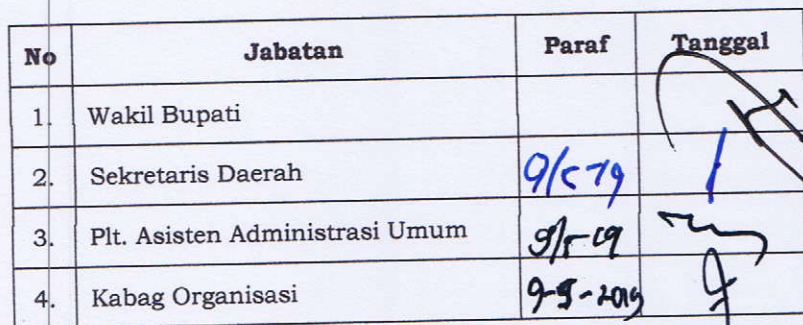 No Jabatan Paraf Tanggal
1. Wakil Bupati
2. Sekretaris Daerah 9/5 19
3. Plt. Asisten Administrasi Umum 9/5-19
4. Kabag Organisasi 9-5-2019